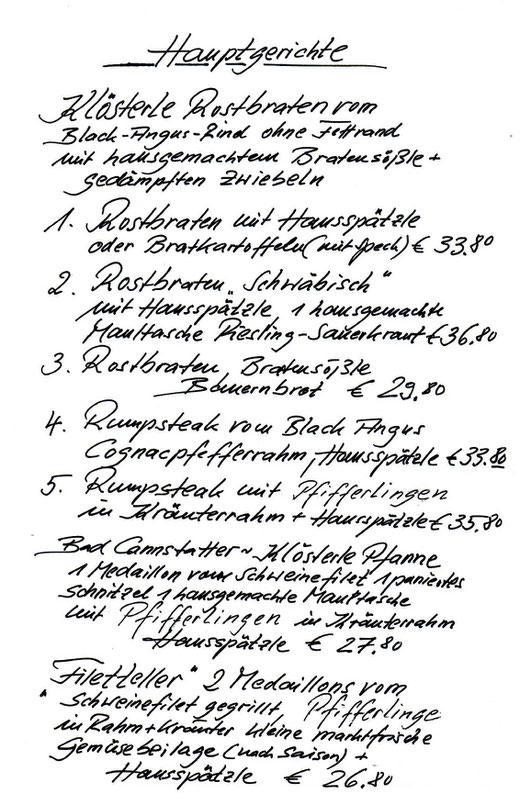 Hauptgerichte
Klösterle Rostbraten vom
Black-Angus-Rind ohne Fettrand
mit hausgemachtem Bratensößle +
gedämpften Zwiebeln
1. Rostbraten mit Hausspätzle
oder Bratkartoffeln (mit Speck) € 33.80
2. Rostbraten „Schwäbisch“
mit Hausspätzle, 1 hausgemachte
Maultasche Riesling-Sauerkraut € 36.80
3. Rostbraten, Bratensößle
Bauernbrot € 29.80
4. Rumpsteak vom Black Angus
Cognacpfefferrahm, Hausspätzle € 33.80
5. Rumpsteak mit Pfifferlingen
in Kräuterrahm + Hausspätzle € 35.80
Bad Cannstatter ~ Klösterle Pfanne
1 Medaillon vom Schweinefilet 1 paniertes
Schnitzel 1 hausgemachte Maultasche
mit Pfifferlingen in Kräuterrahm
Hausspätzle € 27.80
„Filetteller“ 2 Medaillons vom
Schweinefilet gegrillt, Pfifferlinge
in Rahm + Kräuter kleine marktfrische
Gemüsebeilage (nach Saison) +
Hausspätzle € 26.80